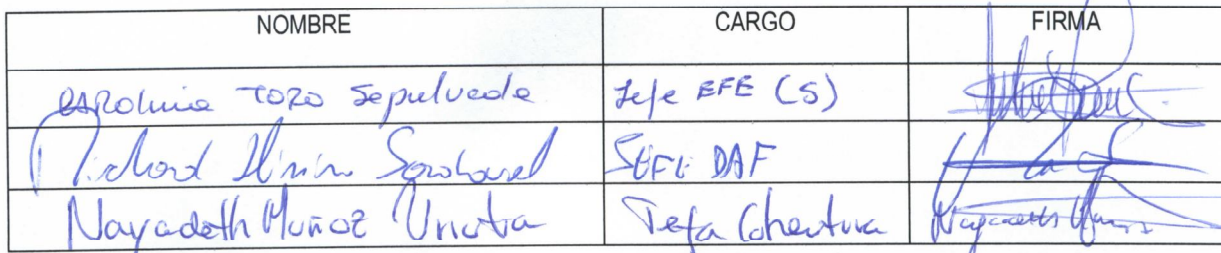 NOMBRE CARGO FIRMA
CAROLINA TORO Sepulveda Jefe EFE (S)
Richard Sandoval JEFE DAF
Nayadeth Muñoz Urrutia Jefa Cobertura Nayadeth Muñoz